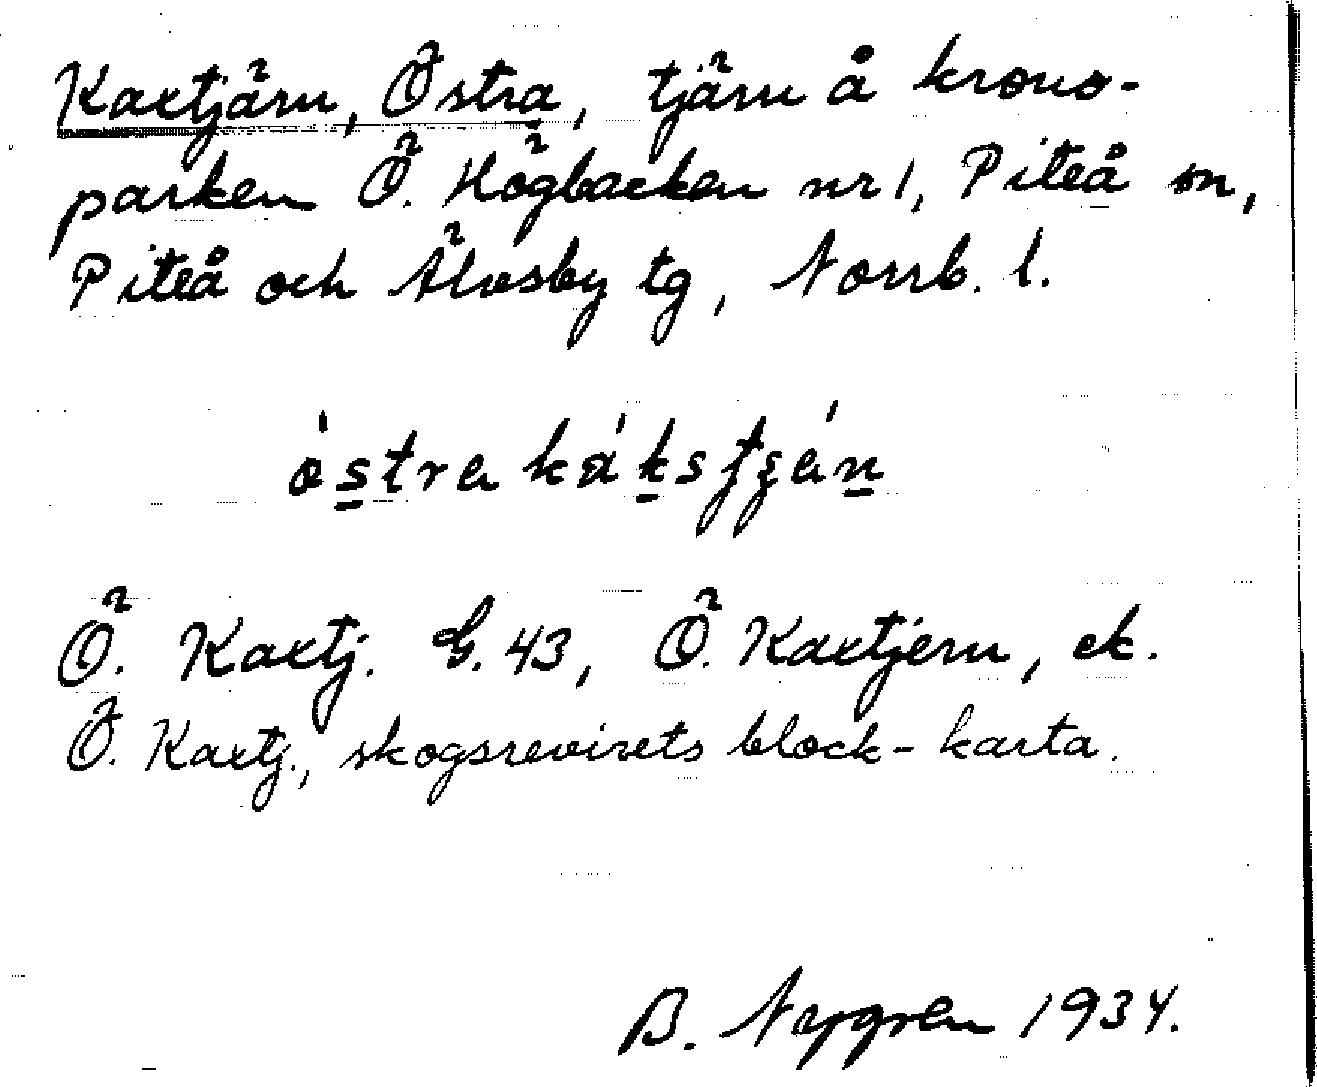 Kaxtjärn, Östra, tjärn å krono-
parken Ö. Högbacken nr 1, Piteå sn,
Piteå och Älvsby tg, Norrb. l.
Ö. Kaxtj. G. 43, Ö. Kaxtjern, ek.
Ö. Kaxtj., skogsrevirets block-karta.
B. Nygren 1934.